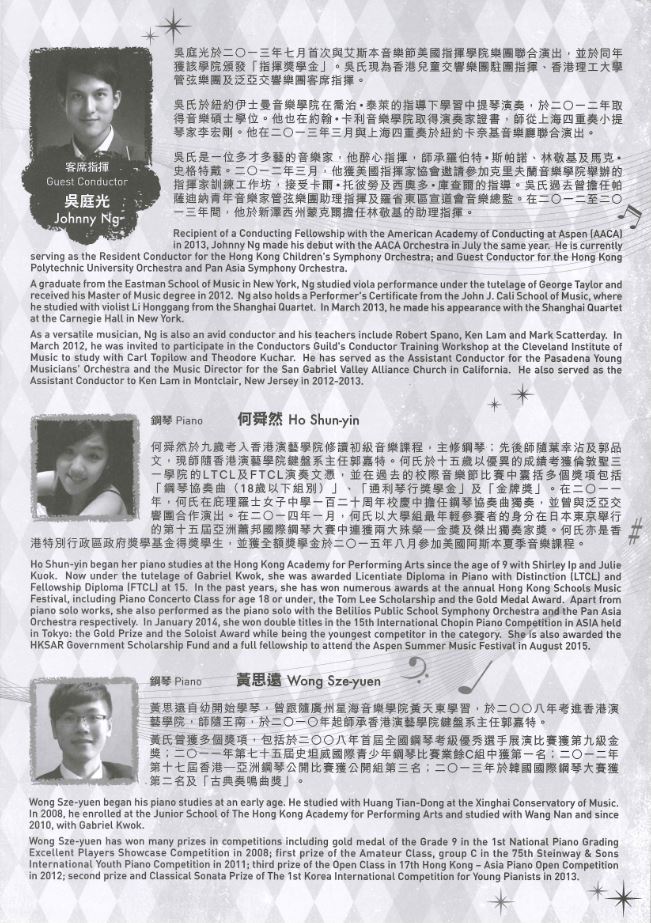 吳庭光於二〇一三年七月首次與艾斯本音樂節美國指揮學院樂團聯合演出，並於同年
獲該學院頒發「指揮獎學金」。吳氏現為香港兒童交響樂團駐團指揮、香港理工大學
管弦樂團及泛亞交響樂團客席指揮。
吳氏於紐約伊士曼音樂學院在喬治•泰萊的指導下學習中提琴演奏，於二〇一二年取
得音樂碩士學位。他也在約翰•卡利音樂學院取得演奏家證書，師從上海四重奏小提
琴家李宏剛。他在二〇一三年三月與上海四重奏於紐約卡奈基音樂廳聯合演出。
吳氏是一位多才多藝的音樂家，他醉心指揮，師承羅伯特•斯帕諾、林敬基及馬克•
史格特戴。二〇一二年三月，他獲美國指揮家協會邀請參加克里夫蘭音樂學院舉辦的
指揮家訓練工作坊，接受卡爾•托彼勞及西奧多•庫查爾的指導。吳氏過去曾擔任帕
薩迪納青年音樂家管弦樂團助理指揮及羅省東區宣道會音樂總監。在二〇一二至二〇
一三年間，他於新澤西州蒙克爾擔任林敬基的助理指揮。
客席指揮
Guest Conductor
吳庭光
Johnny Ng
Recipient of a Conducting Fellowship with the American Academy of Conducting at Aspen (AACA)
in 2013, Johnny Ng made his debut with the AACA Orchestra in July the same year. He is currently
serving as the Resident Conductor for the Hong Kong Children's Symphony Orchestra; and Guest Conductor for the Hong Kong
Polytechnic University Orchestra and Pan Asia Symphony Orchestra.
A graduate from the Eastman School of Music in New York, Ng studied viola performance under the tutelage of George Taylor and
received his Master of Music degree in 2012. Ng also holds a Performer's Certificate from the John J. Cali School of Music, where
he studied with violist Li Honggang from the Shanghai Quartet. In March 2013, he made his appearance with the Shanghai Quartet
at the Carnegie Hall in New York.
As a versatile musician, Ng is also an avid conductor and his teachers include Robert Spano, Ken Lam and Mark Scatterday. In
March 2012, he was invited to participate in the Conductors Guild's Conductor Training Workshop at the Cleveland Institute of
Music to study with Carl Topilow and Theodore Kuchar. He has served as the Assistant Conductor for the Pasadena Young
Musicians' Orchestra and the Music Director for the San Gabriel Valley Alliance Church in California. He also served as the
Assistant Conductor to Ken Lam in Montclair, New Jersey in 2012-2013.
鋼琴 Piano 何舜然 Ho Shun-yin
何舜然於九歲考入香港演藝學院修讀初級音樂課程，主修鋼琴；先後師隨葉幸沾及郭品
文，現師隨香港演藝學院鍵盤系主任郭嘉特。何氏於十五歲以優異的成績考獲倫敦聖三
一學院的LTCL及FTCL演奏文憑，並在過去的校際音樂節比賽中囊括多個獎項包括
「鋼琴協奏曲（18歲以下組別）」、「通利琴行獎學金」及「金牌獎」。在二〇一一
年，何氏在庇理羅士女子中學一百二十周年校慶中擔任鋼琴協奏曲獨奏，並曾與泛亞交
響樂團合作演出。在二〇一四年一月，何氏以大學組最年輕參賽者的身分在日本東京舉行
的第十五屆亞洲蕭邦國際鋼琴大賽中連獲兩大殊榮—金獎及傑出獨奏家獎。何氏亦是香
港特別行政區政府獎學基金得獎學生，並獲全額獎學金於二〇一五年八月參加美國阿斯本夏季音樂課程。
Ho Shun-yin began her piano studies at the Hong Kong Academy for Performing Arts since the age of 9 with Shirley Ip and Julie
Kuok. Now under the tutelage of Gabriel Kwok, she was awarded Licentiate Diploma in Piano with Distinction (LTCL) and
Fellowship Diploma (FTCL) at 15. In the past years, she has won numerous awards at the annual Hong Kong Schools Music
Festival, including Piano Concerto Class for age 18 or under, the Tom Lee Scholarship and the Gold Medal Award. Apart from
piano solo works, she also performed as the piano solo with the Belilios Public School Symphony Orchestra and the Pan Asia
Orchestra respectively. In January 2014, she won double titles in the 15th International Chopin Piano Competition in ASIA held
in Tokyo: the Gold Prize and the Soloist Award while being the youngest competitor in the category. She is also awarded the
HKSAR Government Scholarship Fund and a full fellowship to attend the Aspen Summer Music Festival in August 2015.
鋼琴 Piano 黃思遠 Wong Sze-yuen
黃思遠自幼開始學琴，曾跟隨廣州星海音樂學院黃天東學習，於二〇〇八年考進香港演
藝學院，師隨王南，於二〇一〇年起師承香港演藝學院鍵盤系主任郭嘉特。
黃氏曾獲多個獎項，包括於二〇〇八年首屆全國鋼琴考級優秀選手展演比賽獲第九級金
獎；二〇一一年第七十五屆史坦威國際青少年鋼琴比賽業餘C組中獲第一名；二〇一二年
第十七屆香港—亞洲鋼琴公開比賽獲公開組第三名；二〇一三年於韓國國際鋼琴大賽獲
第二名及「古典奏鳴曲獎」。
Wong Sze-yuen began his piano studies at an early age. He studied with Huang Tian-Dong at the Xinghai Conservatory of Music.
In 2008, he enrolled at the Junior School of The Hong Kong Academy for Performing Arts and studied with Wang Nan and since
2010, with Gabriel Kwok.
Wong Sze-yuen has won many prizes in competitions including gold medal of the Grade 9 in the 1st National Piano Grading
Excellent Players Showcase Competition in 2008; first prize of the Amateur Class, group C in the 75th Steinway & Sons
International Youth Piano Competition in 2011; third prize of the Open Class in 17th Hong Kong – Asia Piano Open Competition
in 2012; second prize and Classical Sonata Prize of The 1st Korea International Competition for Young Pianists in 2013.